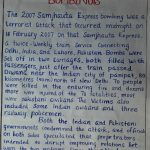 BOMBINGS
The 2007 Samjhauta Express bombing was a
terrorist attack that occurred midnight on
18 February 2007 on that Samjhauta Express,
a twice-weekly train service connecting
Delhi, India, and Lahore, Pakistan. Bombs were
set off in two carriages, both filled with
Passengers, just after the train passed
near the Indian city of panipat, 80
kilometres north of New Delhi. 70 people
were killed in the ensuing fire and dozens
more were injured. of the 70 fatalities, most
were pakistani civilians. The victims also
included some Indian civilians and three
railway policemen.
Both the Indian and Pakistani
Governments condemned the attack, and officials
on both sides speculated that perpetrators
intended to disrupt improving relations